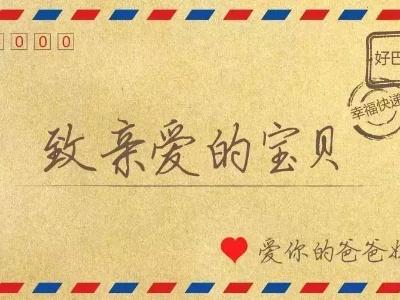 0 0 0 0
好巴
幸福快递
致亲爱的宝贝
爱你的爸爸